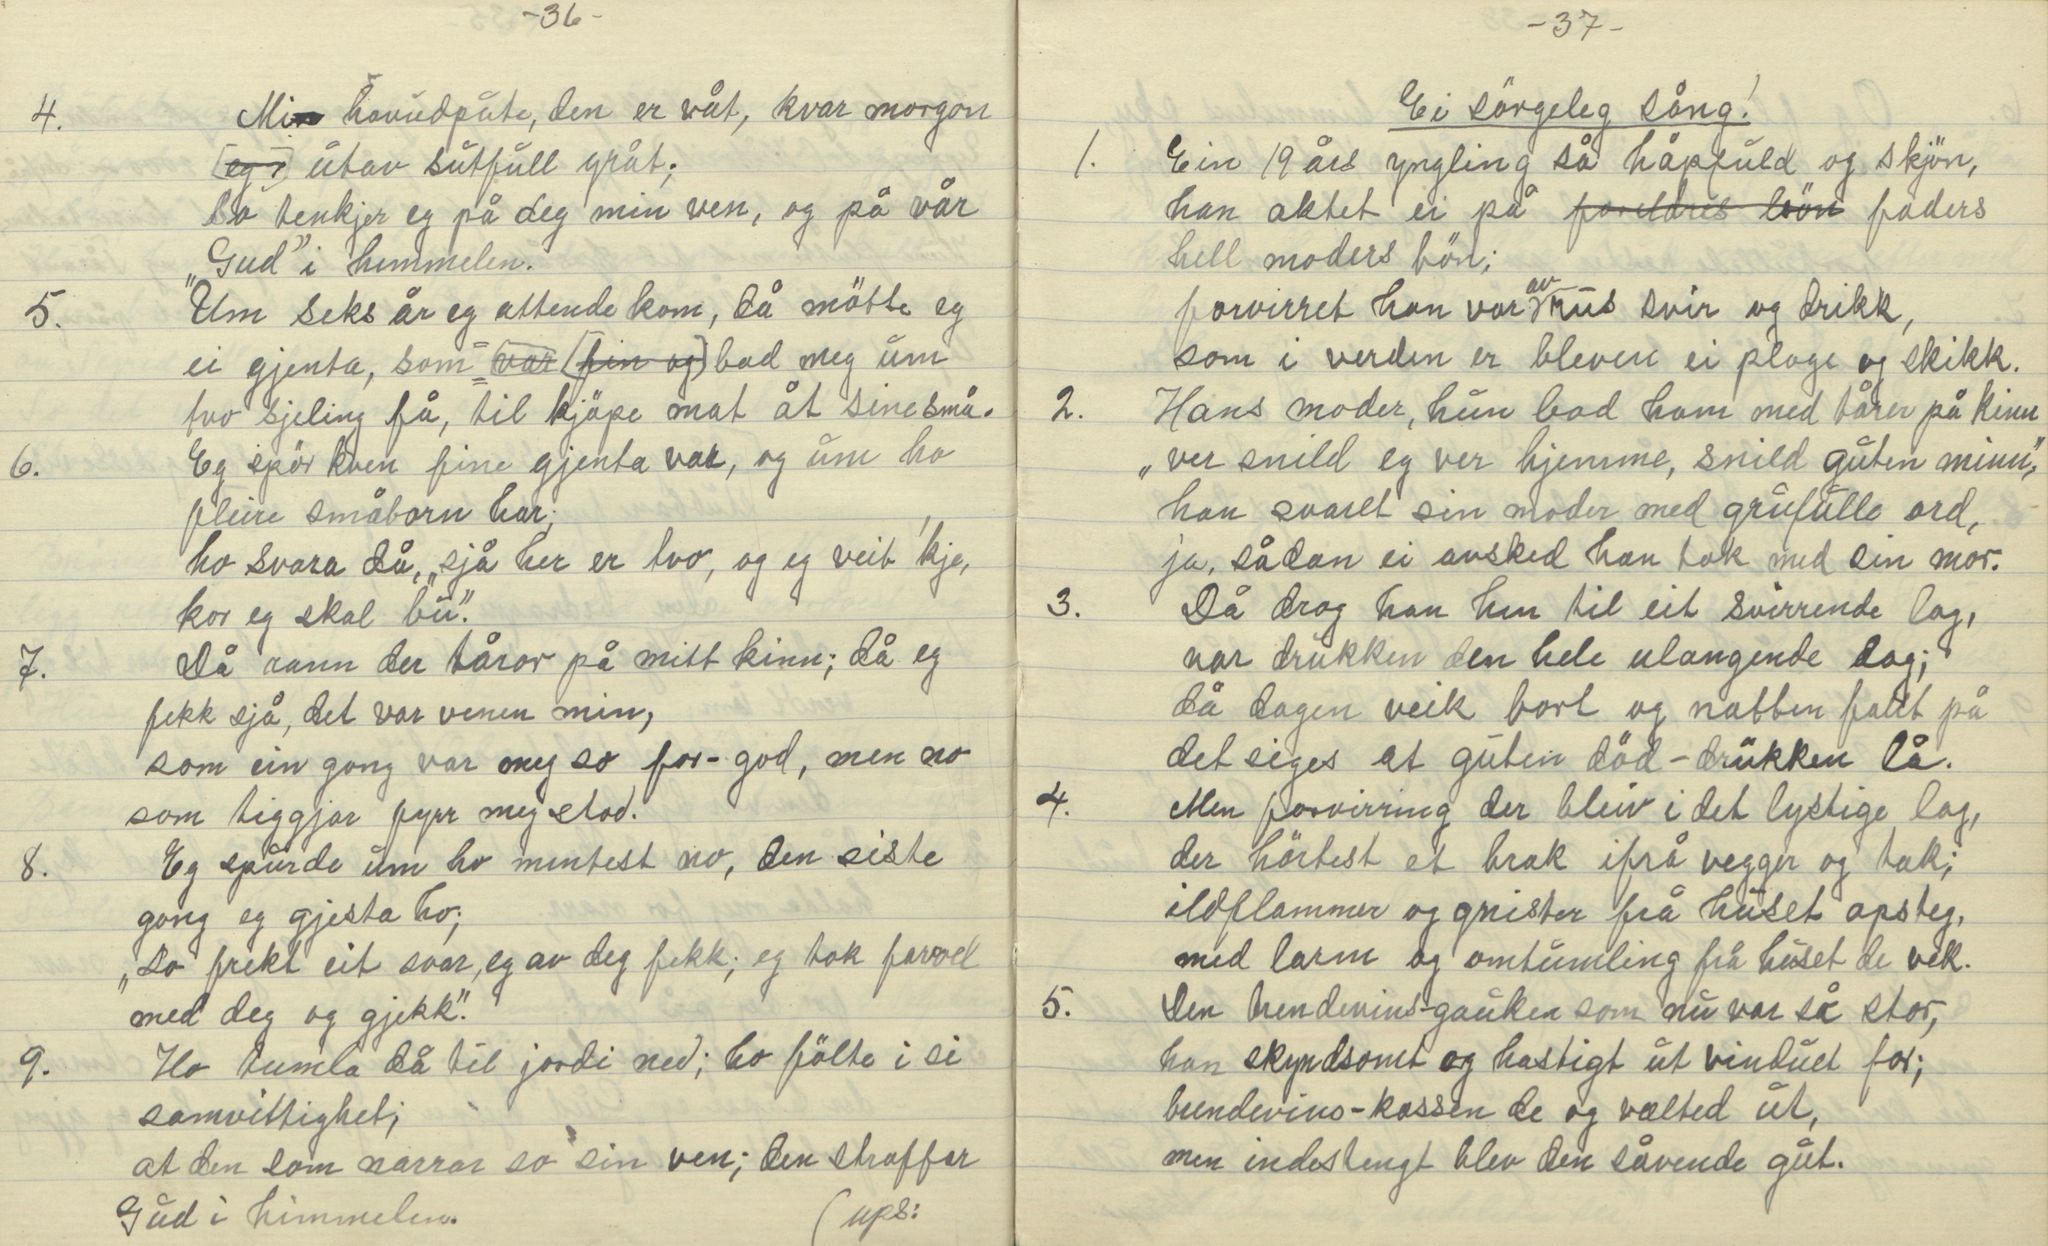 -36-
4. Min hovudpute, den er våt, kvar morgon
utav sutfull gråt;
So tenkjer eg på deg min ven, og på vår
„Gud” i himmelen.
5. Um seks år eg attende kom, då mötte eg
ei gjenta, som var fin og bad meg um
tvo sjeling få, til kjöpe mat åt sine små.
6. Eg spör kven fine gjenta var, og um ho
fleire småborn har;
ho svara då, „sjå her er tvo, og eg veit 'kje,
kor eg skal bu”.
7. Då rann der tåror på mitt kinn; då eg
fekk sjå, det var venen min,
som ein gong var meg so for-god, men no
som tiggjar fyrr meg stod.
8. Eg spurde um ho mintest no, den siste
gong eg gjesta ho;
„So frekt eit svar, eg av deg fekk; eg tok farvel
med deg og gjekk”.
9. Ho tumla då til jordi ned; ho fölte i si
samvittighet;
at den som narrar so sin ven; den straffar
Gud i himmelen.
(ups:
-37-
Ei sörgeleg sång!
1. Ein 19 års yngling så håpfuld og skjön,
han aktet ei på foreldres bön faders
hell moders bön;
forvirret han var av rus svir og drikk,
som i verden er bleven ei plage og skikk.
2. Hans moder, hun bad ham med tårer på kinn
„ver snild og ver hjemme, snild guten minn”,
han svaret sin moder med grufulle ord,
ja, sådan ei avsked han tok med sin mor.
3. Då drog han hen til eit svirrende lag,
var drukken den hele ulangende dag;
då dagen veik bort og natten falt på
det siges at guten död-drukken lå.
4. Men forvirring der bleiv i det lystige lag,
der hörtest et brak ifrå vegger og tak;
ildflammer og gnister frå huset opsteg,
med larm og omtumling frå huset de vek.
5. Den brendevins-gauken som nu var så stor,
han skyndsomt og hastigt ut vinduet for;
brendevins-kassen de og valted ut,
men indestengt blev den såvende gut.